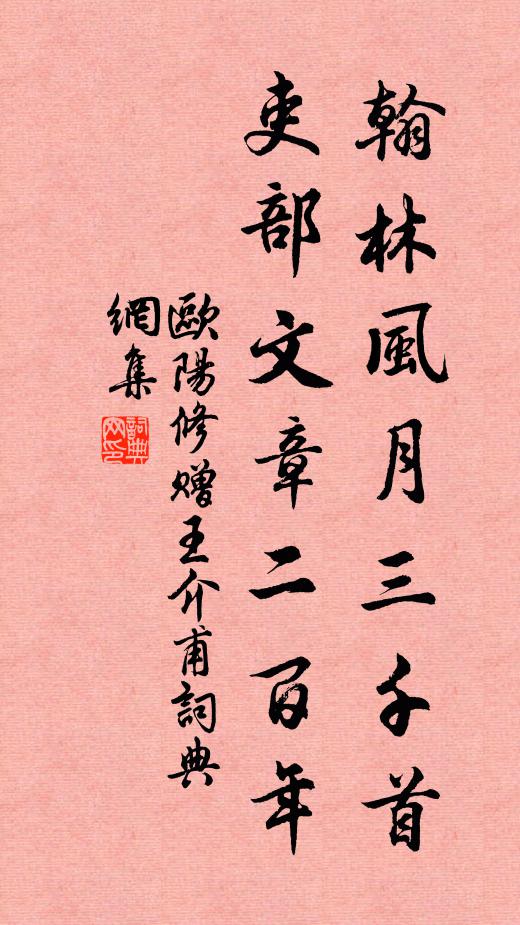 翰林風月三千首
吏部文章二百年
歐陽修贈王介甫詞典
網集
詞典
网印